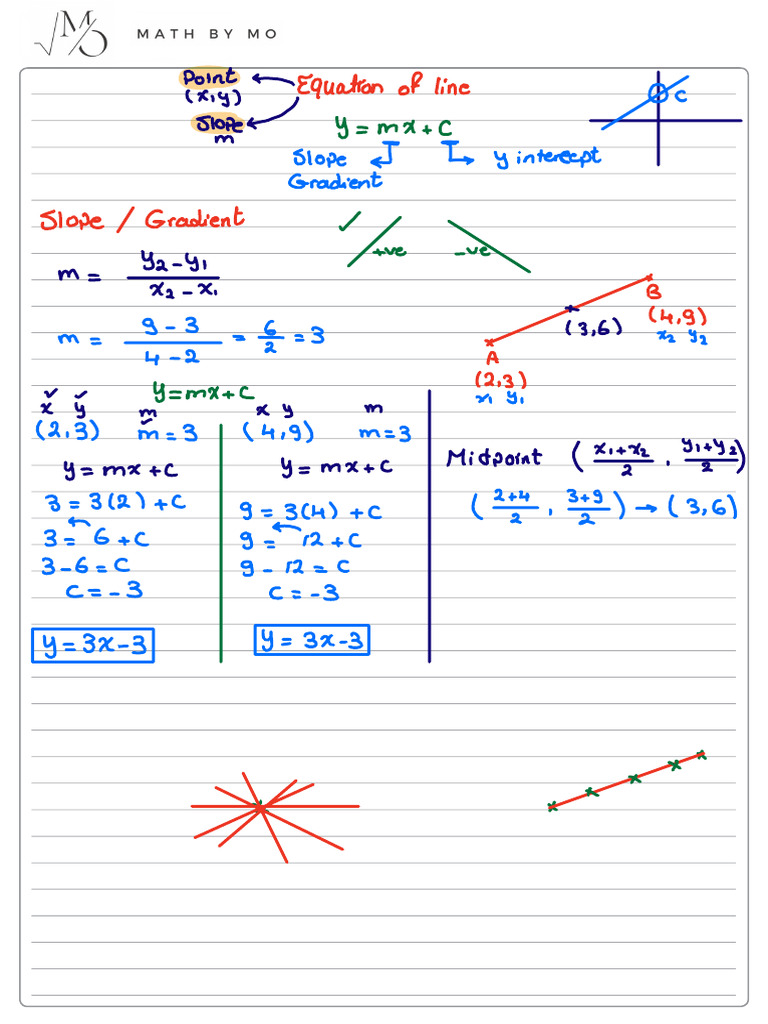 √MO MATH BY MO
Point
(x,y)
Equation of line
Slope
m
y = mx + C
Slope
Gradient
y intercept
C
Slope / Gradient
+ve
-ve
m = (y₂ - y₁) / (x₂ - x₁)
m = (9 - 3) / (4 - 2) = 6/2 = 3
A
(2,3)
x₁ y₁
(3,6)
B
(4,9)
x₂ y₂
y = mx + C
x y m
(2,3) m = 3
y = mx + C
3 = 3(2) + C
3 = 6 + C
3 - 6 = C
C = -3
y = 3x - 3
x y m
(4,9) m = 3
y = mx + C
9 = 3(4) + C
9 = 12 + C
9 - 12 = C
C = -3
y = 3x - 3
Midpoint ((x₁+x₂)/2 , (y₁+y₂)/2)
((2+4)/2 , (3+9)/2) → (3,6)